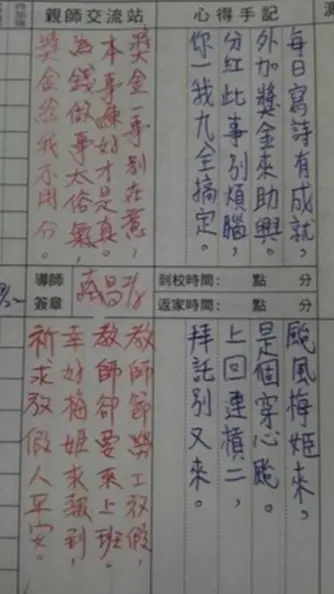 心得手記
每日寫詩有成就，
外加獎金來助興。
分紅此事別煩腦，
你一我九全搞定。
親師交流站
獎金一事別在意，
本事練好才是真。
為錢做事太俗氣，
獎金給我不用分。
到校時間： 點 分
返家時間： 點 分
導師
簽章
颱風梅姬來，
是個穿心颱。
上回連槓二，
拜託別又來。
教師節勞工放假，
教師卻要來上班。
幸好梅姬來報到，
祈求放假人平安。